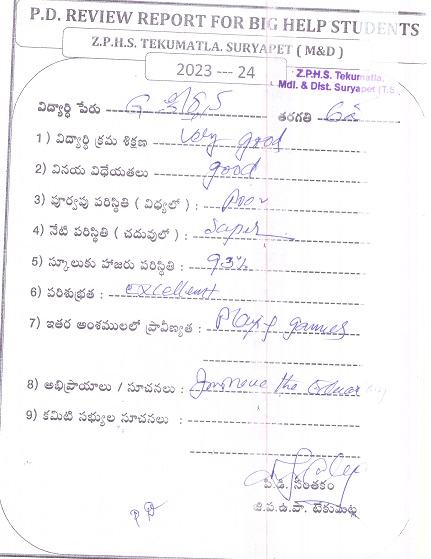 P.D. REVIEW REPORT FOR BIG HELP STUDENTS
Z.P.H.S. TEKUMATLA. SURYAPET ( M&D )
2023 --- 24
Z.P.H.S. Tekumatla,
Mdl. & Dist. Suryapet (T.S.
విద్యార్థి పేరు తరగతి
1 ) విద్యార్థి క్రమ శిక్షణ Very good
2) వినయ విధేయతలు good
3) పూర్వపు పరిస్థితి ( విధ్యలో ) : Poor
4) నేటి పరిస్థితి ( చదువులో ) : Super
5) స్కూలుకు హాజరు పరిస్థితి : 93%
6) పరిశుభ్రత : excellent
7) ఇతర అంశములలో ప్రావీణ్యత : Playing games
8) అభిప్రాయాలు / సూచనలు : Improve the
9) కమిటి సభ్యుల సూచనలు :
పి.డి. సంతకం
జి.ప.ఉ.పా. టేకుమట్ల